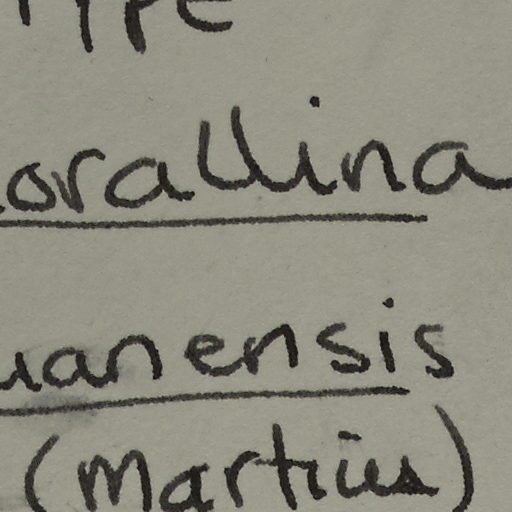 TYPE
orallina
uanensis
(Martius)